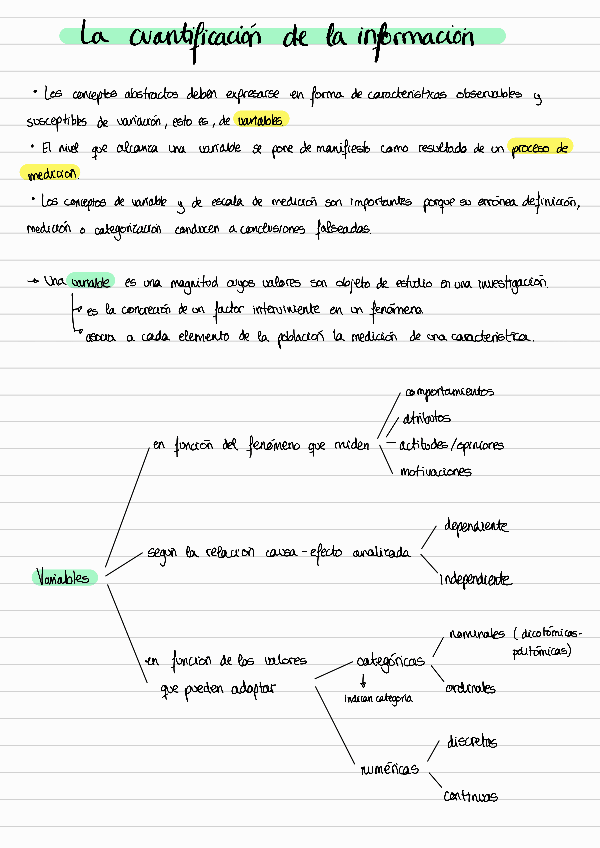 La cuantificación de la información
• Los conceptos abstractos deben expresarse en forma de características observables y
susceptibles de variación, esto es, de variables.
• El nivel que alcanza una variable se pone de manifiesto como resultado de un proceso de
medición.
• Los conceptos de variable y de escala de medición son importantes porque su errónea definición,
medición o categorización conducen a conclusiones falseadas.
→ Una variable es una magnitud cuyos valores son objeto de estudio en una investigación.
es la concreción de un factor interviniente en un fenómeno.
asocia a cada elemento de la población la medición de una característica.
comportamientos
atributos
en función del fenómeno que miden
actitudes/opiniones
motivaciones
dependiente
según la relación causa-efecto analizada
Variables
independiente
nominales (dicotómicas-
politómicas)
en función de los valores
categóricas
que pueden adoptar
ordinales
indican categoría
discretas
numéricas
continuas